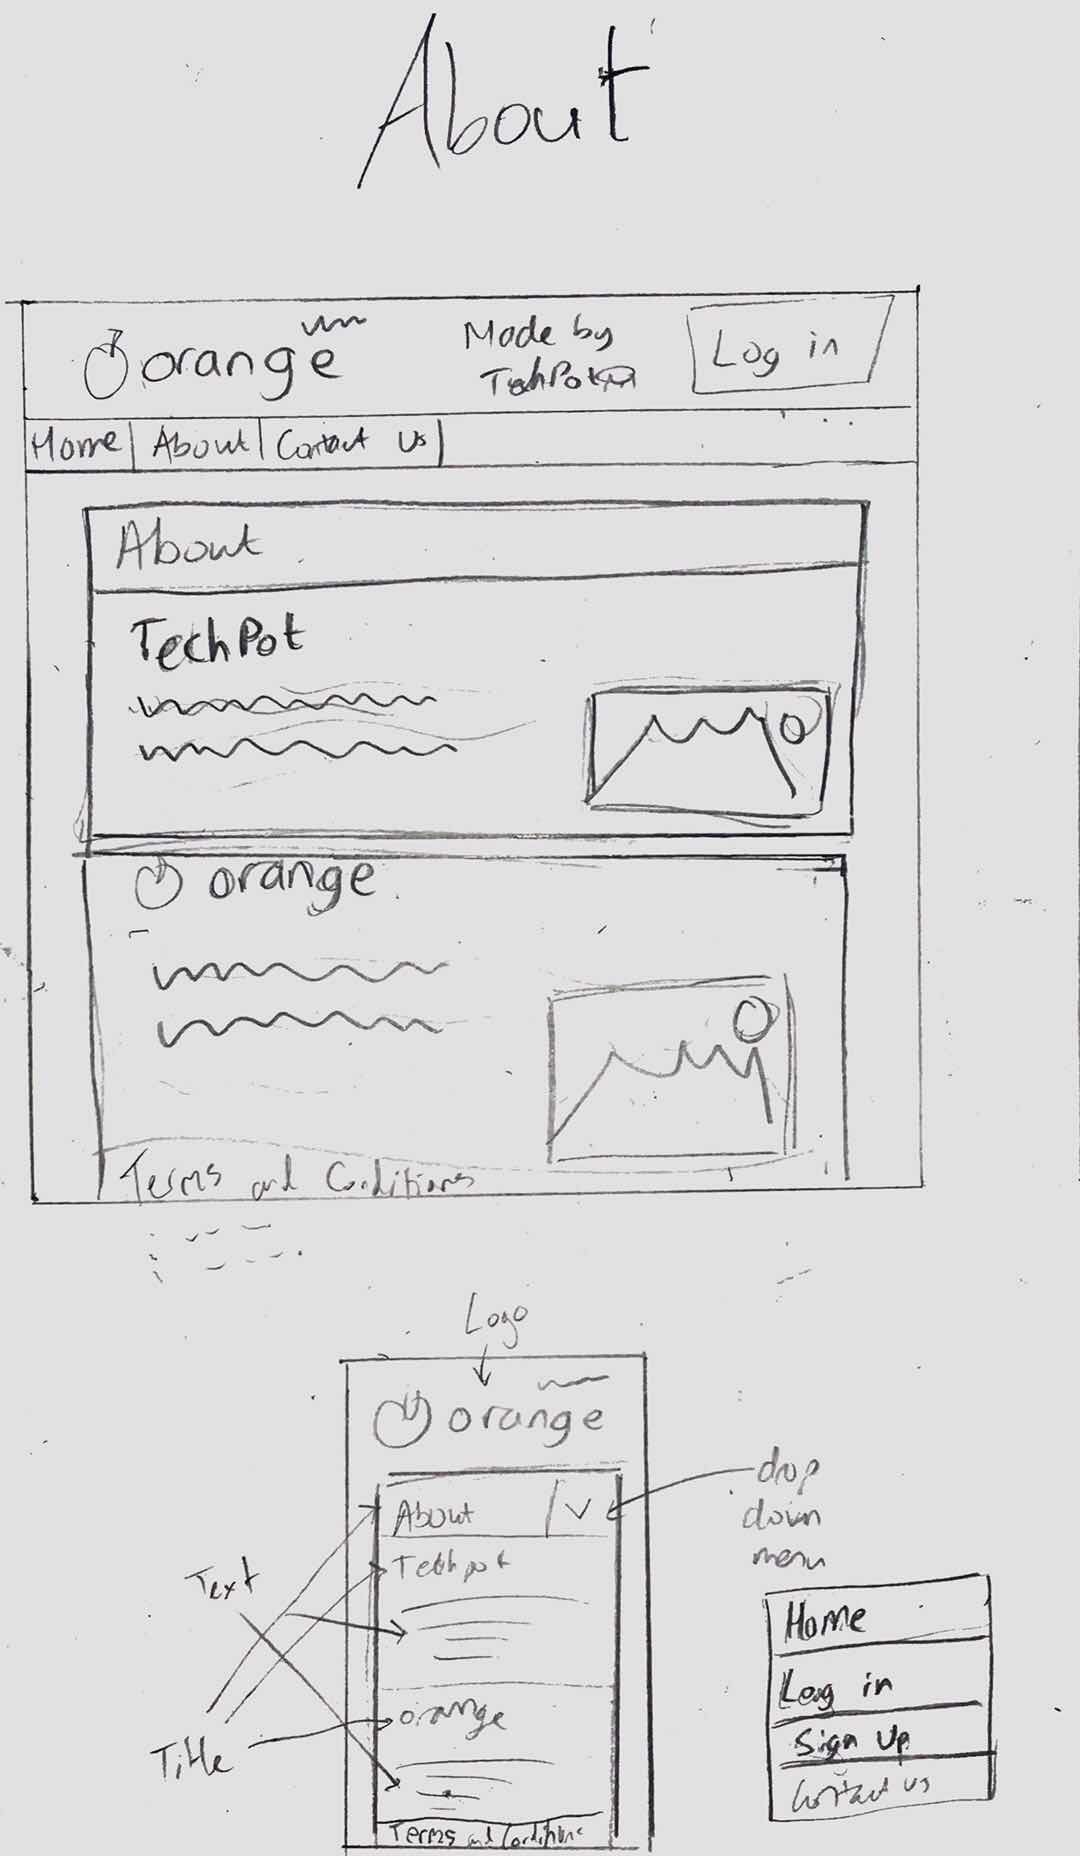 About
orange
Made by
TechPot
Log in
Home
About
Contact Us
About
TechPot
orange
Terms and Conditions
Logo
orange
drop
down
menu
About
Techpot
Text
orange
Title
Terms and Conditions
Home
Log in
Sign Up
Contact us